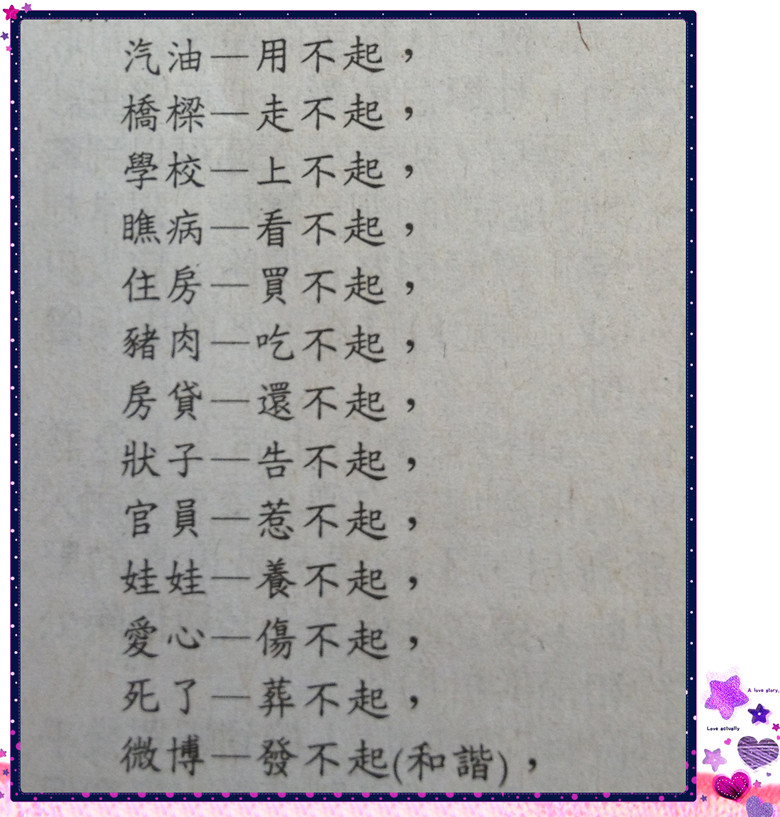 汽油—用不起，
橋樑—走不起，
學校—上不起，
瞧病—看不起，
住房—買不起，
豬肉—吃不起，
房貸—還不起，
狀子—告不起，
官員—惹不起，
娃娃—養不起，
愛心—傷不起，
死了—葬不起，
微博—發不起(和諧)，
A love story.
Love actually